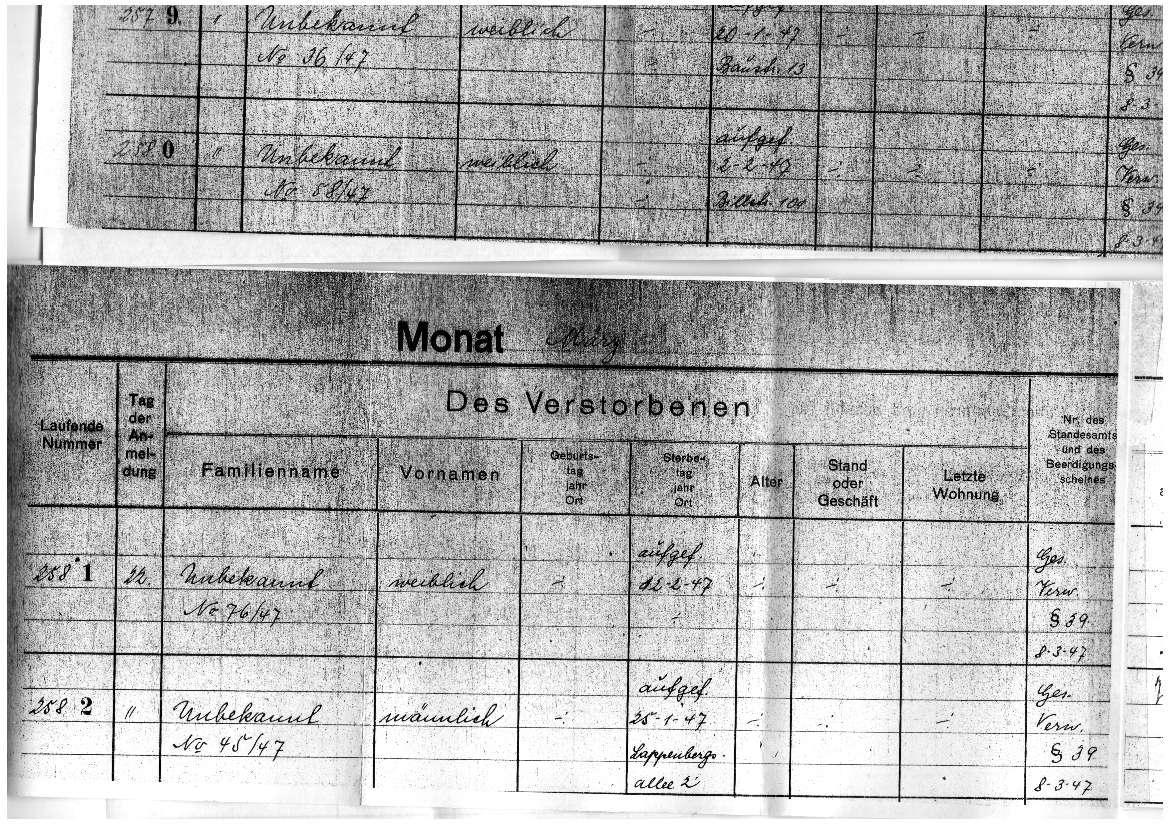 aufgef.
257 9. " Unbekannt weiblich -:- 20-1-47 -:- -:- -:- Ges.
No 36/47 Verw.
Bäustr. 13 § 39
8-3-
aufgef. Ges.
258 0 " Unbekannt weiblich -:- 2-2-47 -:- -:- -:- Verw.
No 58/47 § 39
Billstr. 100
8-3-4
Monat März
Laufende
Nummer
Tag
der
An-
mel-
dung
Des Verstorbenen
Familienname
Vornamen
Geburts-
tag
jahr
Ort
Sterbe-
tag
jahr
Ort
Alter
Stand
oder
Geschäft
Letzte
Wohnung
Nr. des
Standesamts
und des
Beerdigungs-
scheines
aufgef. Ges.
258 1 22. Unbekannt weiblich -:- 12-2-47 -:- -:- -:- Verw.
No 76/47 -:- § 39
8-3-47
aufgef. Ges.
258 2 " Unbekannt männlich -:- 25-1-47 -:- -:- -:- Verw.
No 45/47 Lappenbergs § 39
allee 2 8-3-47